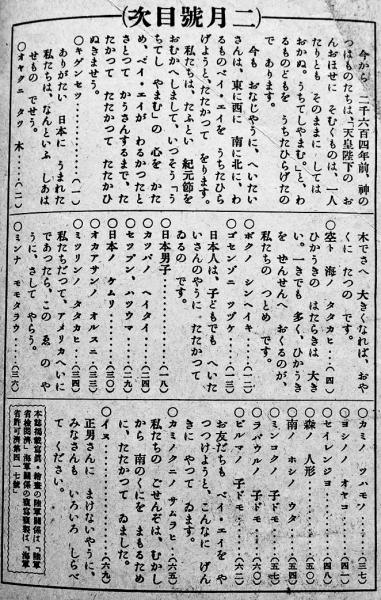 (次目號月二)
今から 二千六百四年前、神の
つはものたちは、「天皇陛下の お
んおほせに そむくものは、一人
たりとも そのままに しては
おかぬ。うちてしやまむ。」と、わ
るものどもを うちたひらげたの
で あります。
今も おなじやうに、へいたい
さんは、東に西に 南に北に、わ
るものベイ・エイを うちたひら
げようと、たたかつて をります。
私たちは、たふとい 紀元節を
おむかへしまして、いつそう「う
ちてし やまむ」の 心を かた
め、ベイ・エイが わるかつたと
さとつて かうさんするまで、た
たかつて たたかつて たたかひ
ぬきませう。
〇キゲンセツ……(一)
ありがたい 日本に うまれた
私たちは、なんといふ しあは
せもの でせう。
〇オヤクニ タツ 木……(二)
木でさへ 大きくなれば、おや
くに たつの です。
〇空ト 海ノ タタカヒ……(四)
ひかうきの はたらきは 大き
い。一きでも 多く、ひかうき
を せんせんへ おくるのが、
私たちの つとめ です。
〇ボクノ シンヘイキ……(一〇)
〇ゴセンゾニ ツヅケ……(一二)
日本人は、子どもでも へいた
いさんのやうに たたかつて
ゐるの です。
〇日本男子……(一四)
〇カッパノ ヘイタイ……(一八)
〇セツブン・ハツウマ……(二九)
〇日本ノ ケムリ……(三〇)
〇オカアサンノ オルスニ……(三二)
〇ミツリンノ タタカヒ……(三四)
私たちだつて、アメリカへいに
であつたら、この ゑの やや
うに、さして やらう。
〇ミンナ モモタラウ……(三六)
〇カミノ ツハモノ……(三七)
〇ヨシノノ オヤコ……(四二)
〇セイレンジヨ……(四八)
〇森ノ 人形……(五一)
〇南ノ ホシノ ウタ……(五四)
〇ミンコクノ 子ドモ……(五七)
〇ラバウルノ 子ドモ……(六〇)
〇ビルマノ 子ドモ……(六二)
お友だちも ベイ・エイを や
つつけようと、こんなに げん
きに やつて ゐます。
〇カミノクニノ サムラヒ……(六五)
私たちの ごせんぞは、むかし
から 南のくにを まもるため
に、たたかつて ゐました。
〇イヌ……(六九)
正男さんに まけないやうに、
みなさんも いろいろ しらべ
て ください。
本誌掲載寫眞・繪畫の陸軍關係は「陸軍
省檢閲濟」海軍關係の複寫複製は「海軍
省許可濟第四一七號」